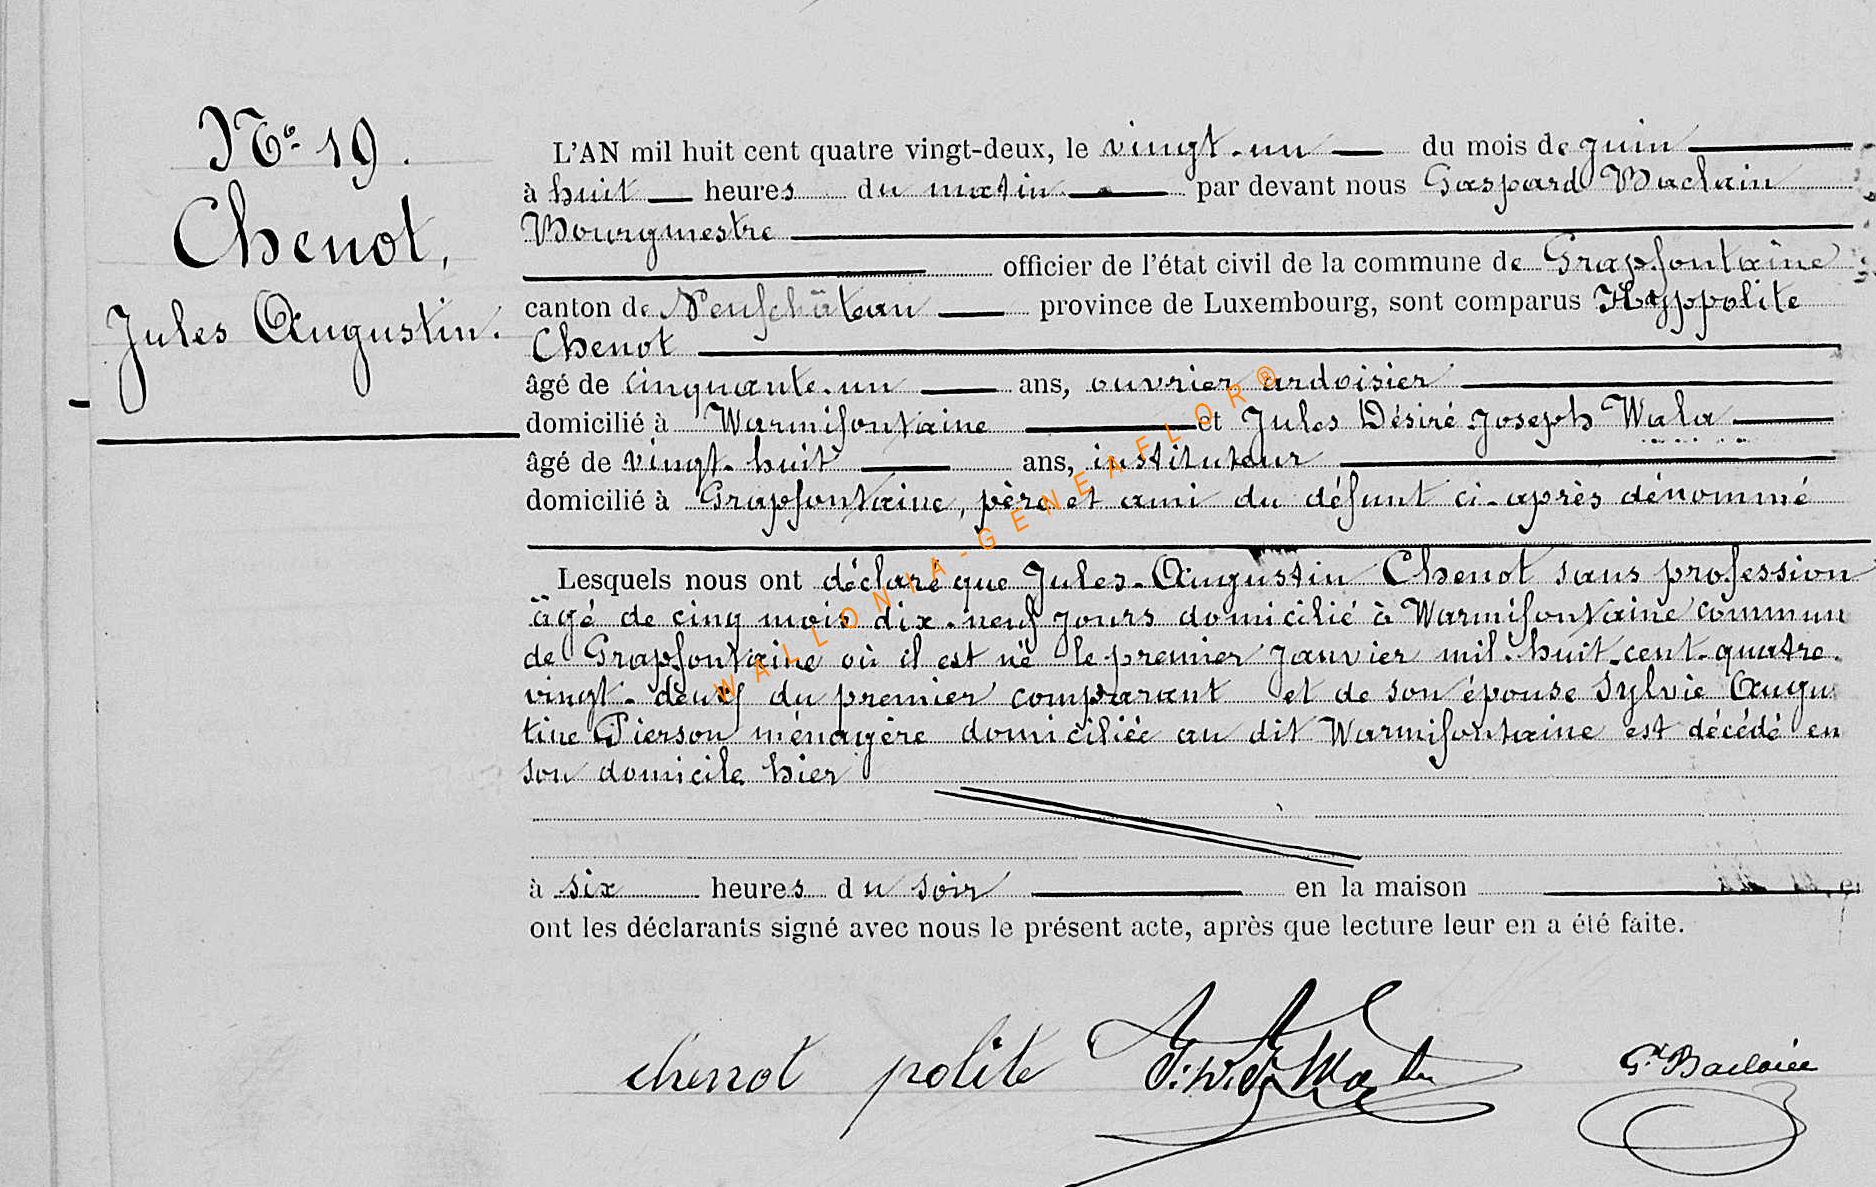 No 19.
Chenot,
Jules Augustin.
L'AN mil huit cent quatre vingt-deux, le vingt-un du mois de juin
à huit heures du matin par devant nous Gaspard Baclain
Bourgmestre
officier de l'état civil de la commune de Grapfontaine
canton de Neufchâteau province de Luxembourg, sont comparus Hyppolite
Chenot
âgé de cinquante-un ans, ouvrier ardoisier
domicilié à Warmifontaine et Jules Désiré Joseph Wala
âgé de vingt-huit ans, instituteur
domicilié à Grapfontaine, père et ami du défunt ci-après dénommé
Lesquels nous ont déclaré que Jules-Augustin Chenot sans profession
âgé de cinq mois dix-neuf jours domicilié à Warmifontaine commun
de Grapfontaine où il est né le premier janvier mil-huit-cent-quatre
vingt-deux du premier comparant et de son épouse Sylvie Augu
tine Pierson ménagère domiciliée au dit Warmifontaine est décédé en
son domicile hier
à six heures du soir en la maison e
ont les déclarants signé avec nous le présent acte, après que lecture leur en a été faite.
chenot polite
Gd Baclain
WALLONIA-GENEAFLOR®